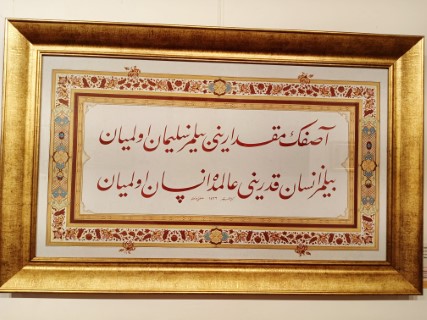 آصفك مقدارینی بیلمز سلیمان اولمیان
بیلمز انسان قدرینی عالمده انسان اولمیان